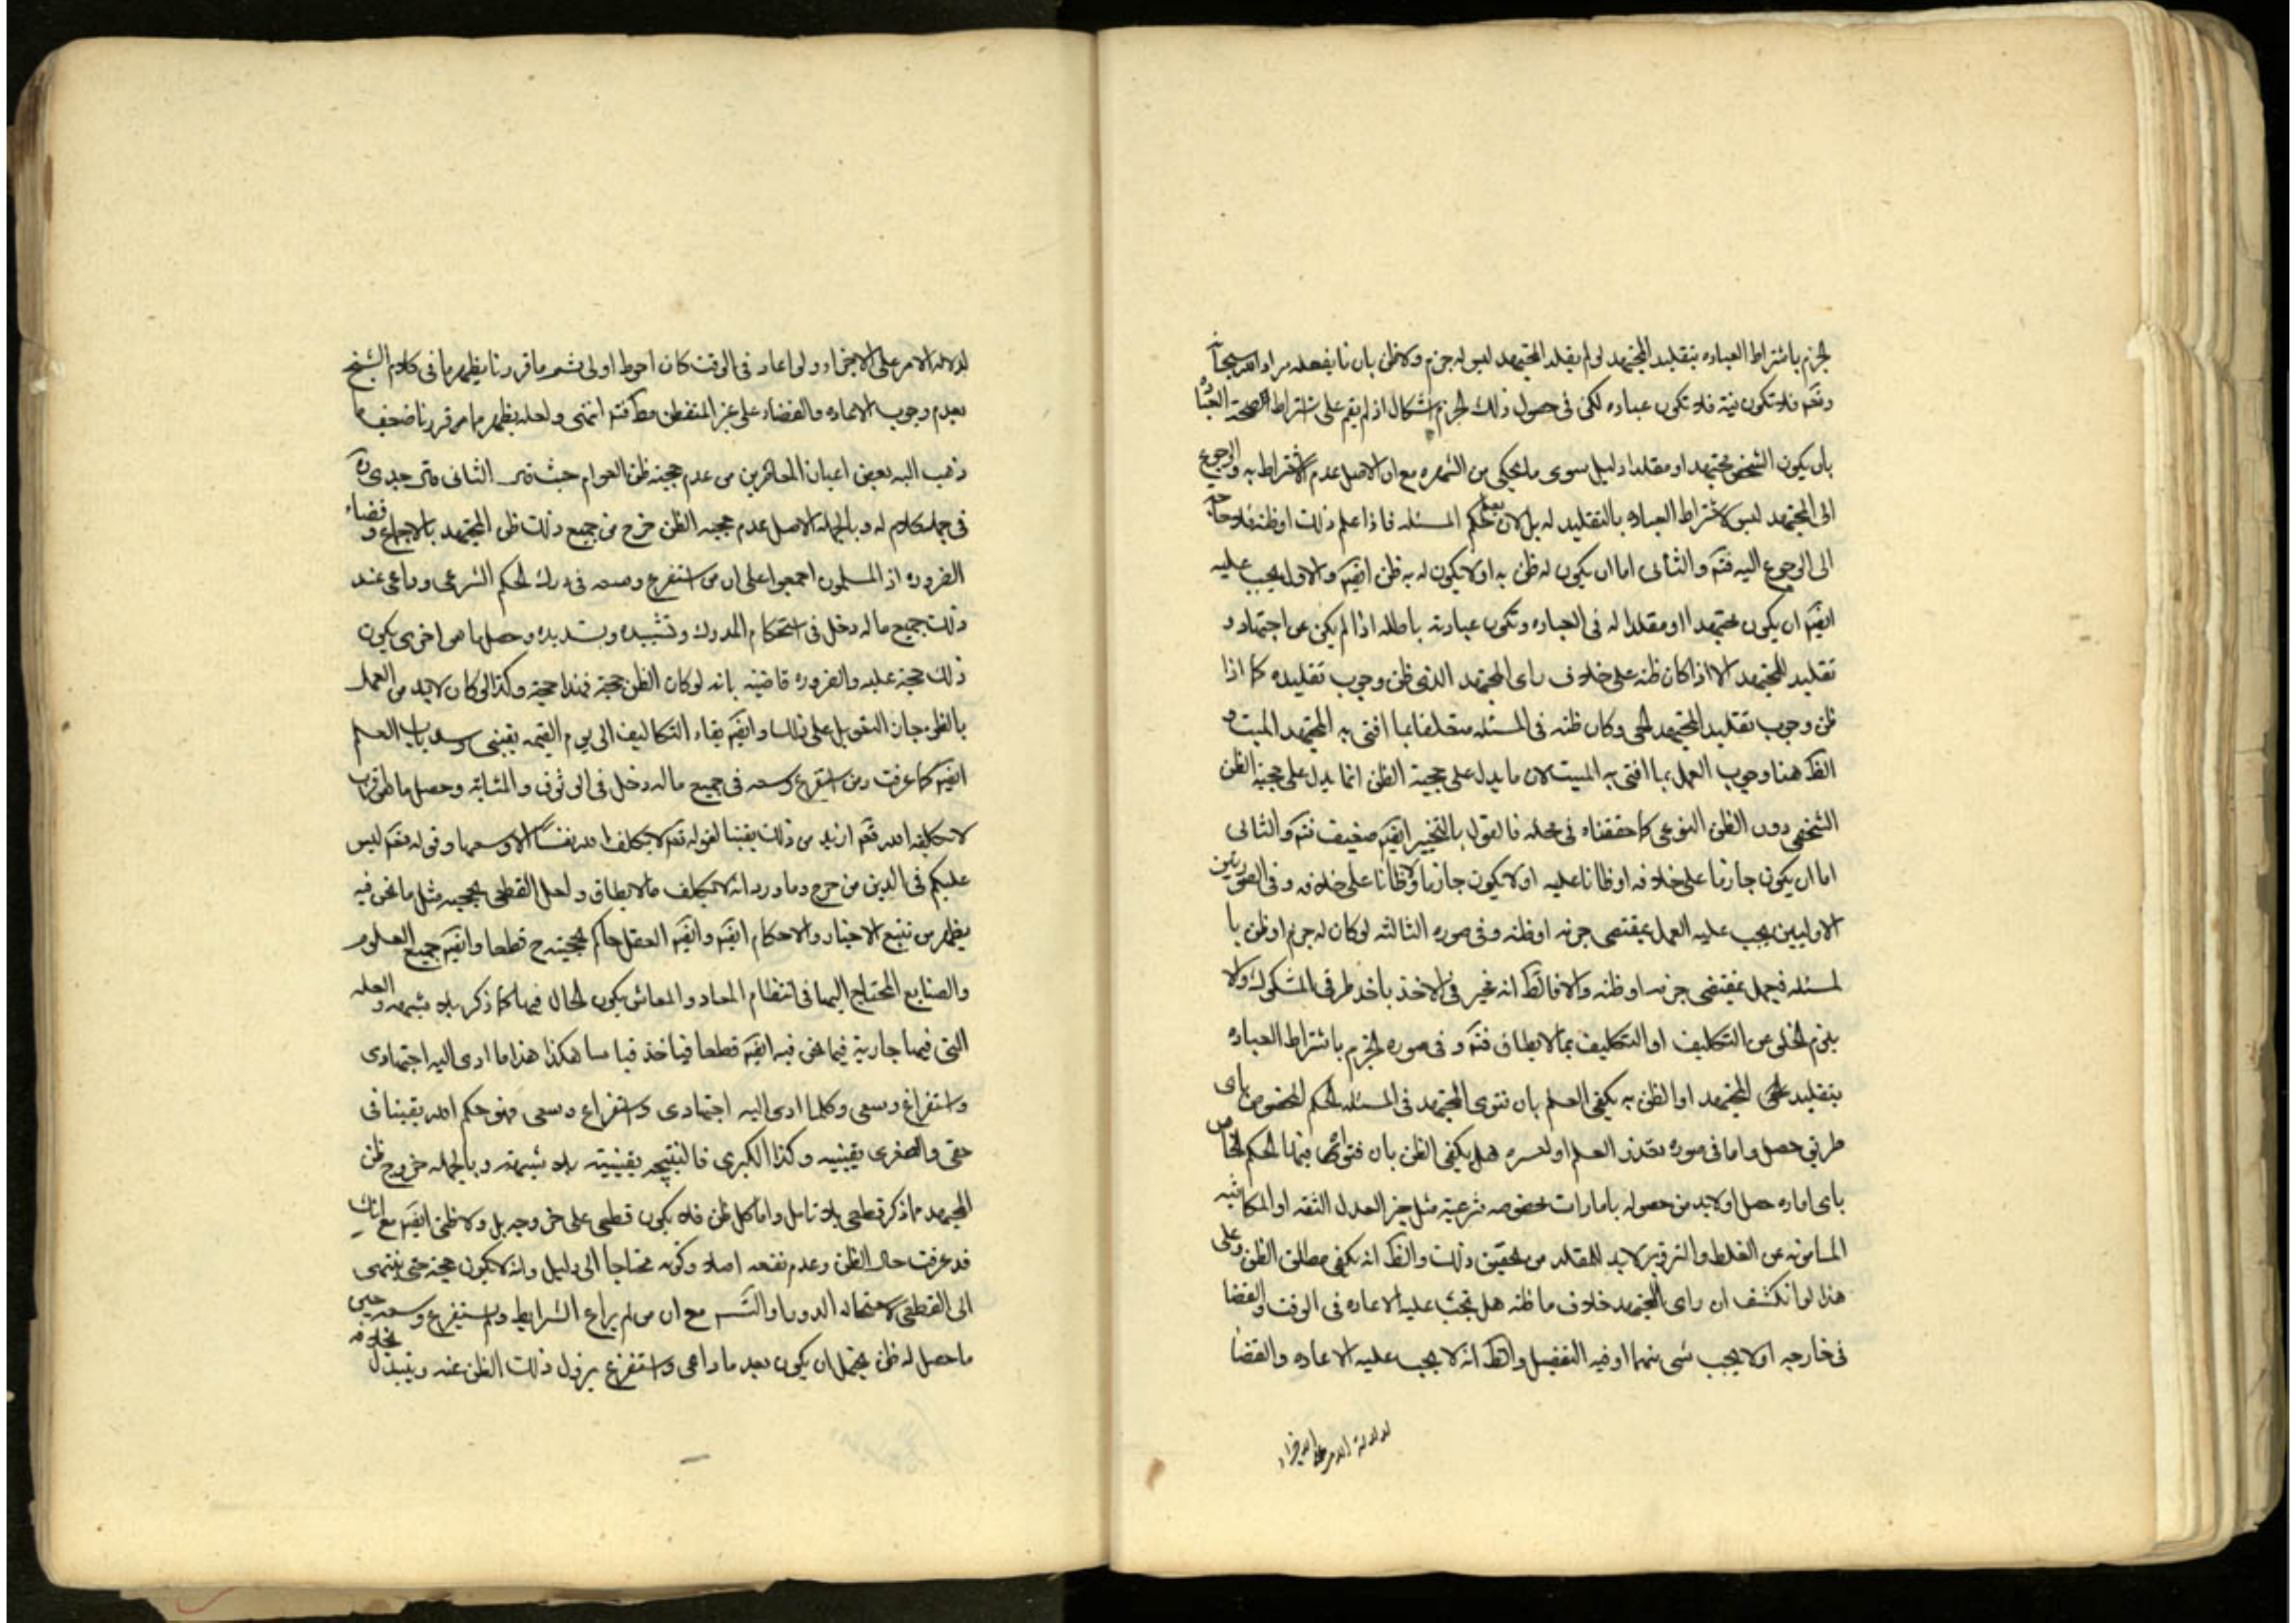 الجزم باشتراط العباده بتقليد المجتهد لو لم يقلد المجتهد ليس له جزم ولا ظن بان ما يفعله مراد الله سبحانه
وتعم فلا تكون نية فلا تكون عباده لكن في حصول ذلك الجزم اشكال اذ لم يقم على اشتراط الصحة العبادة
بان يكون الشخص مجتهدا او مقلدا دليل سوى ما يحكى من الشهره مع ان الاصل عدم الاشتراط به والرجوع
الى المجتهد ليس لاشتراط العباده بالتقليد له بل لان يعلم حكم المسئله فاذا علم ذلك او ظنه فلا حاجه
الى الرجوع اليه فتم والثانى اما ان يكون له ظن به او لا يكون له به ظن ايضم والاول يجب عليه
ايضم ان يكون مجتهدا او مقلدا له فى العباده وتكون عبادته باطله اذا لم يكن عن اجتهاد و
تقليد للمجتهد الا اذا كان ظنه على خلاف راى المجتهد الذى ظن وجوب تقليده كما اذا
ظن وجوب تقليد المجتهد الحى وكان ظنه فى المسئله متخلفا بما افتى به المجتهد الميت و
الظ هنا وجوب العمل بما افتى به الميت لان ما يدل على حجية الظن انما يدل على حجية الظن
الشخصى دون الظن النوعى كما حققناه فى محله فالقول بالتخيير ايضم ضعيف فتم والثانى
اما ان يكون جازما على خلافه او ظانا عليه او لا يكون جازما ولا ظانا على خلافه وفى الصورتين
الاوليين يجب عليه العمل بمقتضى جزمه او ظنه وفى صوره الثالثه لو كان له جزم او ظن با
لمسئله فيعمل بمقتضى جزمه او ظنه والا فالظ انه مخير فى الاخذ باحد طرفى المشكوك ولا
يلزم الخلو عن التكليف او التكليف بما لا يطاق فتم و فى صوره الجزم باشتراط العباده
بتقليد المجتهد او الظن به يكفى العلم بان فتوى المجتهد فى المسئله الحكم المخصوص باى
طريق حصل واما فى صوره تعذر العلم او لعسره هل يكفى الظن بان فتواه فيها الحكم الخاص
باى اماره حصل او لابد من حصوله بامارات مخصوصه شرعية مثل خبر العدل الثقه او المكاتبه
المامونه عن الغلط والتزوير لابد للمقلد من تحقيق ذلك والظ انه يكفى مطلق الظن وعلى
هذا لو انكشف ان راى المجتهد خلاف ما ظنه هل تجب عليه الاعاده فى الوقت والقضا
فى خارجه او لا يجب شى منهما او فيه التفصيل والظ انه لا يجب عليه الاعاده والقضا
لدلالة الامر على الاجزاء
لدلاله الامر على الاجزاء ولو اعاد فى الوقت كان احوط اولى ثم ما قررنا يظهر ما فى كلام الشيخ
بعدم وجوب الاعاده والقضاء على غير المتفطن مط فتم انتهى ولعله يظهر ما مر قررنا ضعف ما
ذهب اليه بعض اعيان المعاصرين من عدم حجية ظن العوام حيث قال
فى جمله كلام له وبالجمله الاصل عدم حجية الظن خرج من جميع ذلك ظن المجتهد بالاجماع وقضاء
الضروره اذ المسلمون اجمعوا على ان من استفرغ وسعه فى درك الحكم الشرعى وراعى عند
ذلك جميع ما له دخل فى استحكام المدرك وتشييده وتسديده وحصل ما هو احرى يكون
ذلك حجة عليه والضروره قاضية بانه لو كان الظن حجة فهذا حجة وكذا لو كان لابد من العمل
بالظن جاز التعويل على ذلك وايضم بقاء التكاليف الى يوم القيمه يقينى وسد باب العلم
ايضم كما عرفت ومن استفرغ وسعه فى جميع ما له دخل فى الوثوق والمتانة وحصل ما هو اقرب
لا يكلفه الله تعم ازيد من ذلك يقينا لقوله تعم لا يكلف الله نفسا الا وسعها وقوله تعم ليس
عليكم فى الدين من حرج وما ورد انه لا يكلف ما لا يطاق ولعل القطعى بحجية مثل ما نحن فيه
يظهر من تتبع الاخبار والاحكام ايضم وايضم العقل حاكم بحجيته ح قطعا وايضم جميع العلوم
والصنايع المحتاج اليها فى انتظام المعاد والمعاش يكون الحال فيها كما ذكر بلا شبهه والعله
التى فيها جارية فيما نحن فيه ايضم قطعا فياخذ قياسا هكذا هذا ما ادى اليه اجتهادى
واستفراغ وسعى وكلما ادى اليه اجتهادى واستفراغ وسعى فهو حكم الله يقينا فى
حقى والصغرى يقينيه وكذا الكبرى فالنتيجه يقينيته بلا شبهه وبالجمله خروج ظن
المجتهد مما ذكر قطعى بلا تامل واما كل ظن فلا يكون قطعى على خروجه بل ولا ظنى ايضم مع انك
قد عرفت حال الظن وعدم نفعه اصلا وكونه محتاجا الى دليل وانه لا يكون حجة حتى ينتهى
الى القطعى لاستحاله الدور او التس مع ان من لم يراع الشرايط ولم يستفرغ وسعه حين
ما حصل له ظن يحتمل ان يكون بعد ما راعى واستفرغ يزول ذلك الظن عنه ويتبدل بخلافه